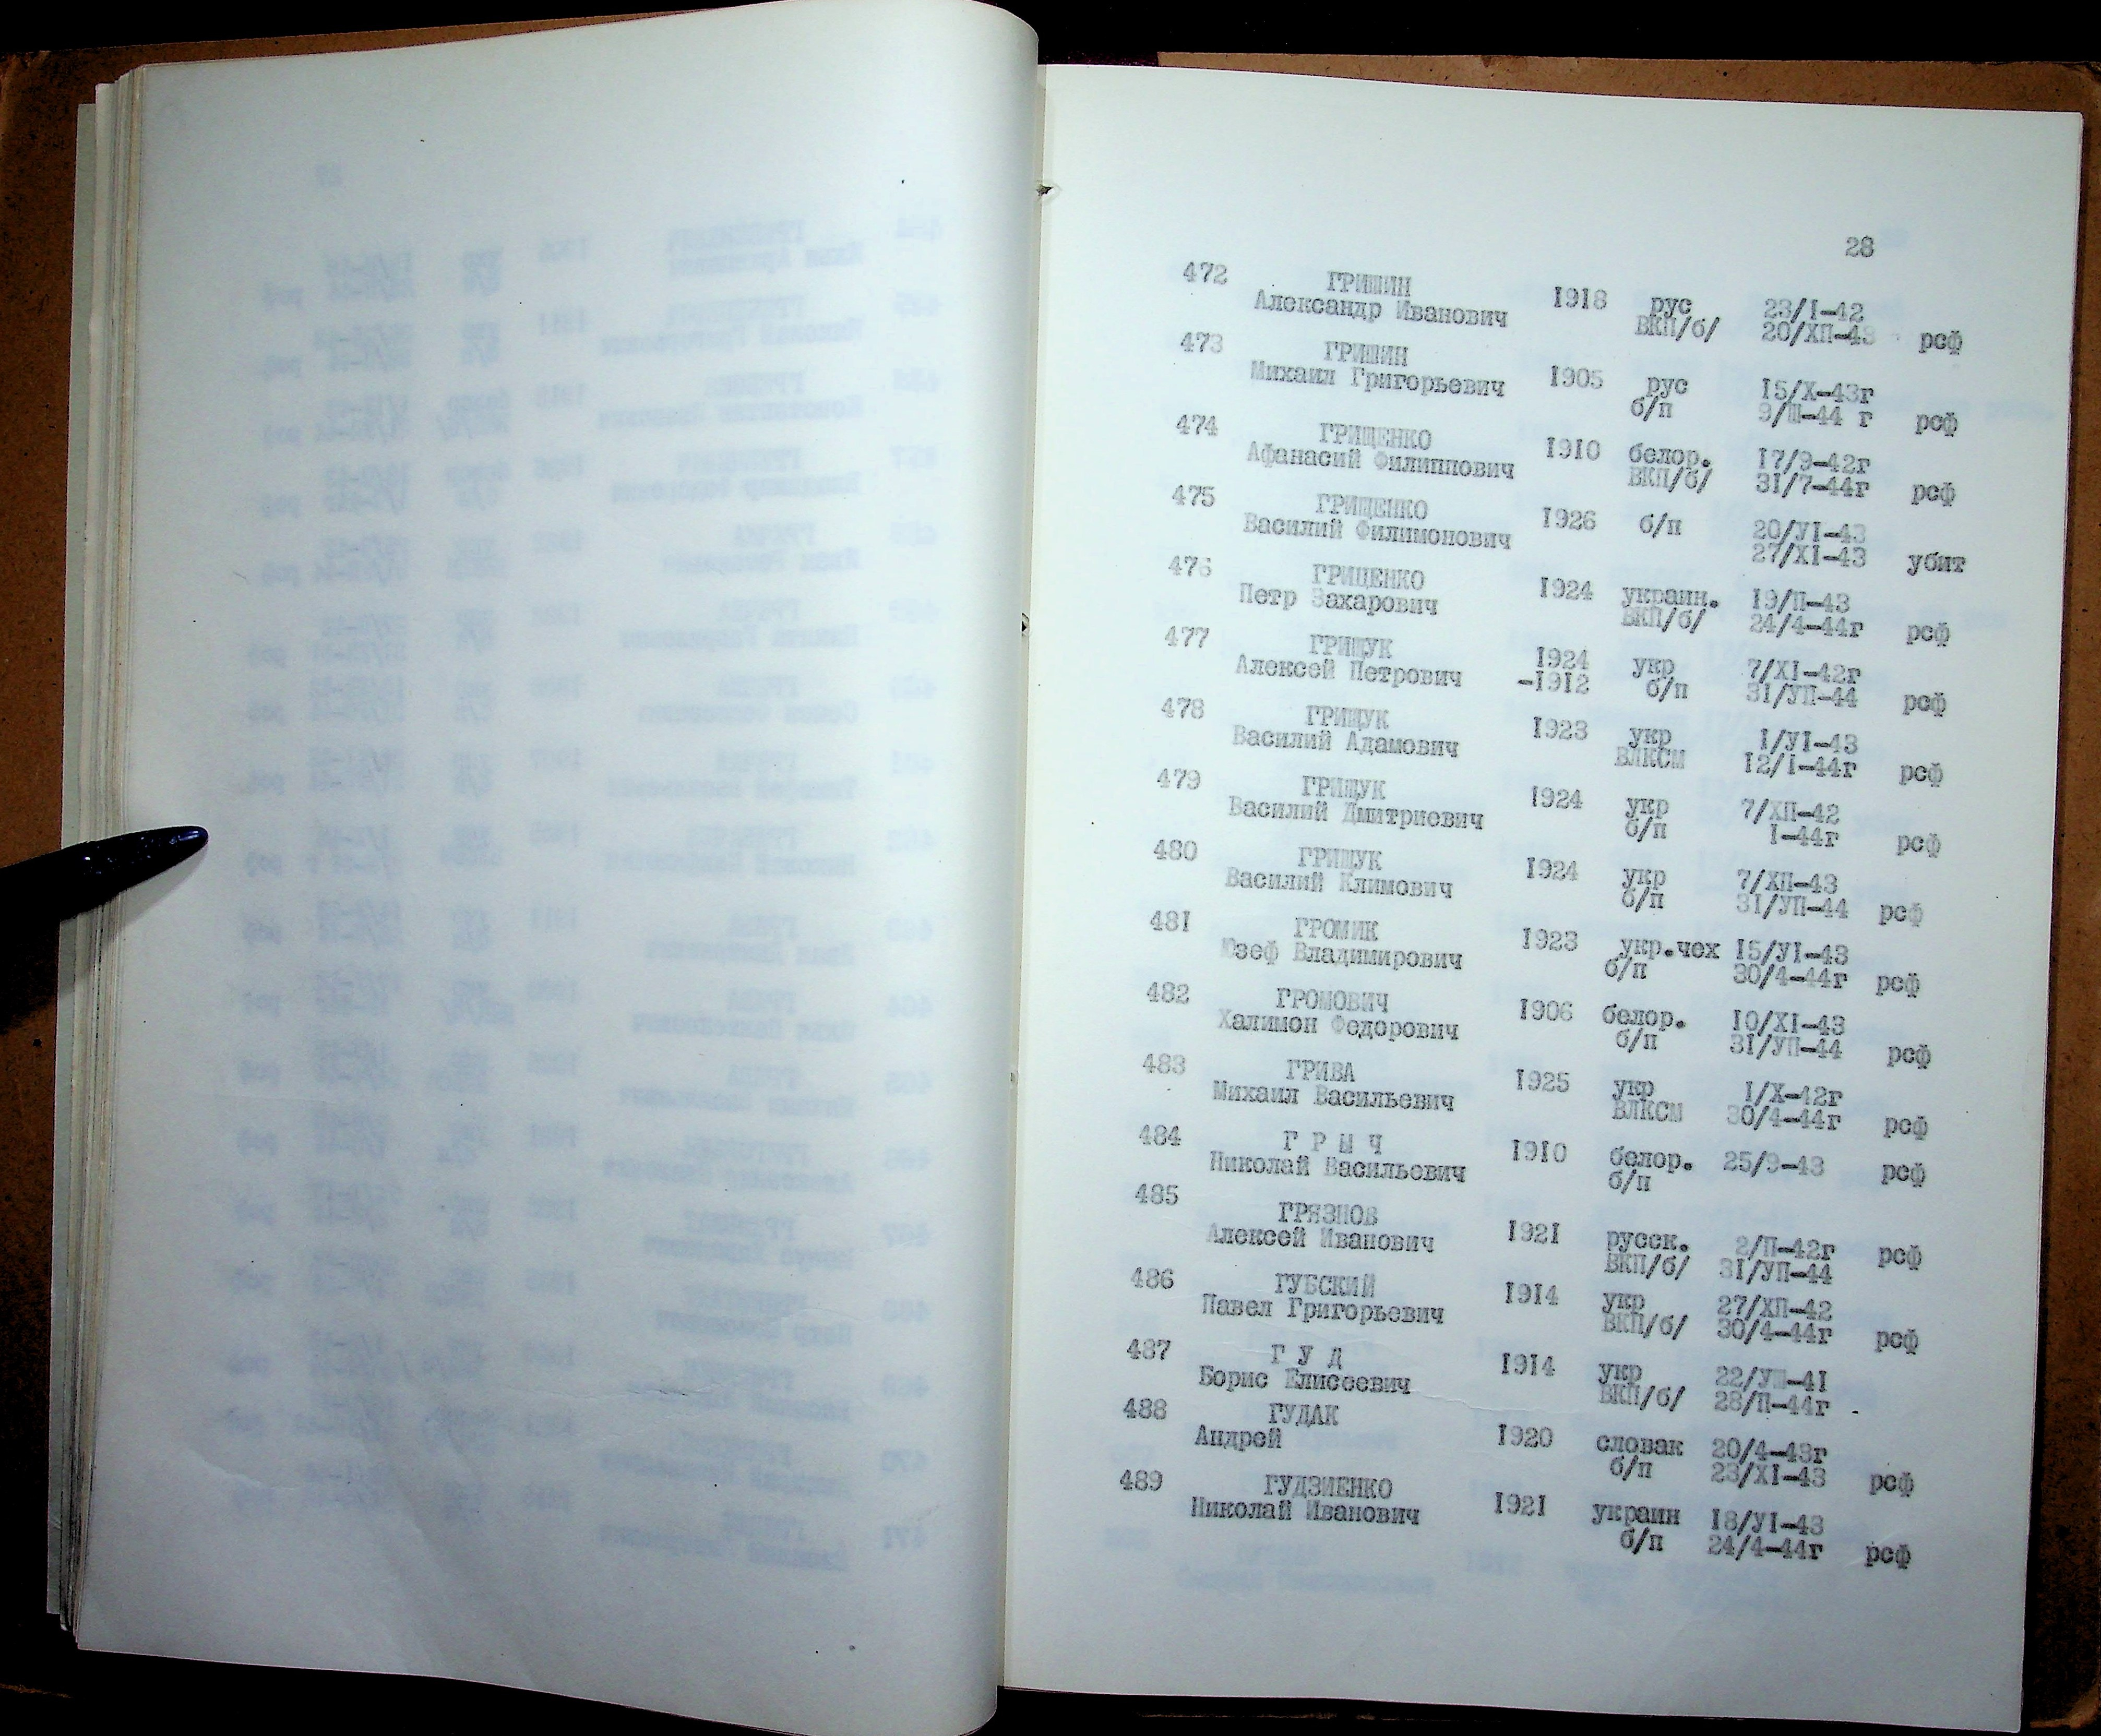 28
472 ГРИШИН
Александр Иванович 1918 рус 23/I-42
ВКП/б/ 20/ХП-43 рсф
473 ГРИШИН
Михаил Григорьевич 1905 рус 15/Х-43г
б/п 9/Ш-44 г рсф
474 ГРИЩЕНКО
Афанасий Филиппович 1910 белор. 17/9-42г
ВКП/б/ 31/7-44г рсф
475 ГРИЩЕНКО
Василий Филимонович 1926 б/п 20/УI-43
27/ХI-43 убит
476 ГРИЩЕНКО
Петр Захарович 1924 украин. 19/П-43
ВКП/б/ 24/4-44г рсф
477 ГРИЩУК 1924 укр 7/ХI-42г
Алексей Петрович -1912 б/п 31/УП-44 рсф
478 ГРИЩУК
Василий Адамович 1923 укр 1/УI-43
ВЛКСМ 12/1-44г рсф
479 ГРИЩУК
Василий Дмитриевич 1924 укр 7/ХП-42
б/п I-44г рсф
480 ГРИЩУК
Василий Климович 1924 укр 7/ХП-43
б/п 31/УП-44 рсф
481 ГРОМИК
Юзеф Владимирович 1923 укр.чех 15/УI-43
б/п 30/4-44г рсф
482 ГРОМОВИЧ
Халимон Федорович 1906 белор. 10/ХI-43
б/п 31/УП-44 рсф
483 ГРИВА
Михаил Васильевич 1925 укр I/Х-42г
ВЛКСМ 30/4-44г рсф
484 Г Р Ы Ч
Николай Васильевич 1910 белор. 25/9-43 рсф
б/п
485 ГРЯЗНОВ
Алексей Иванович 1921 русск. 2/П-42г рсф
ВКП/б/ 31/УП-44
486 ГУБСКИЙ
Павел Григорьевич 1914 укр 27/ХП-42
ВКП/б/ 30/4-44г рсф
487 Г У Д
Борис Елисеевич 1914 укр 22/УШ-41
ВКП/б/ 28/П-44г
488 ГУДАК
Андрей 1920 словак 20/4-43г
б/п 23/ХI-43 рсф
489 ГУДЗИЕНКО
Николай Иванович 1921 украин 18/УI-43
б/п 24/4-44г рсф